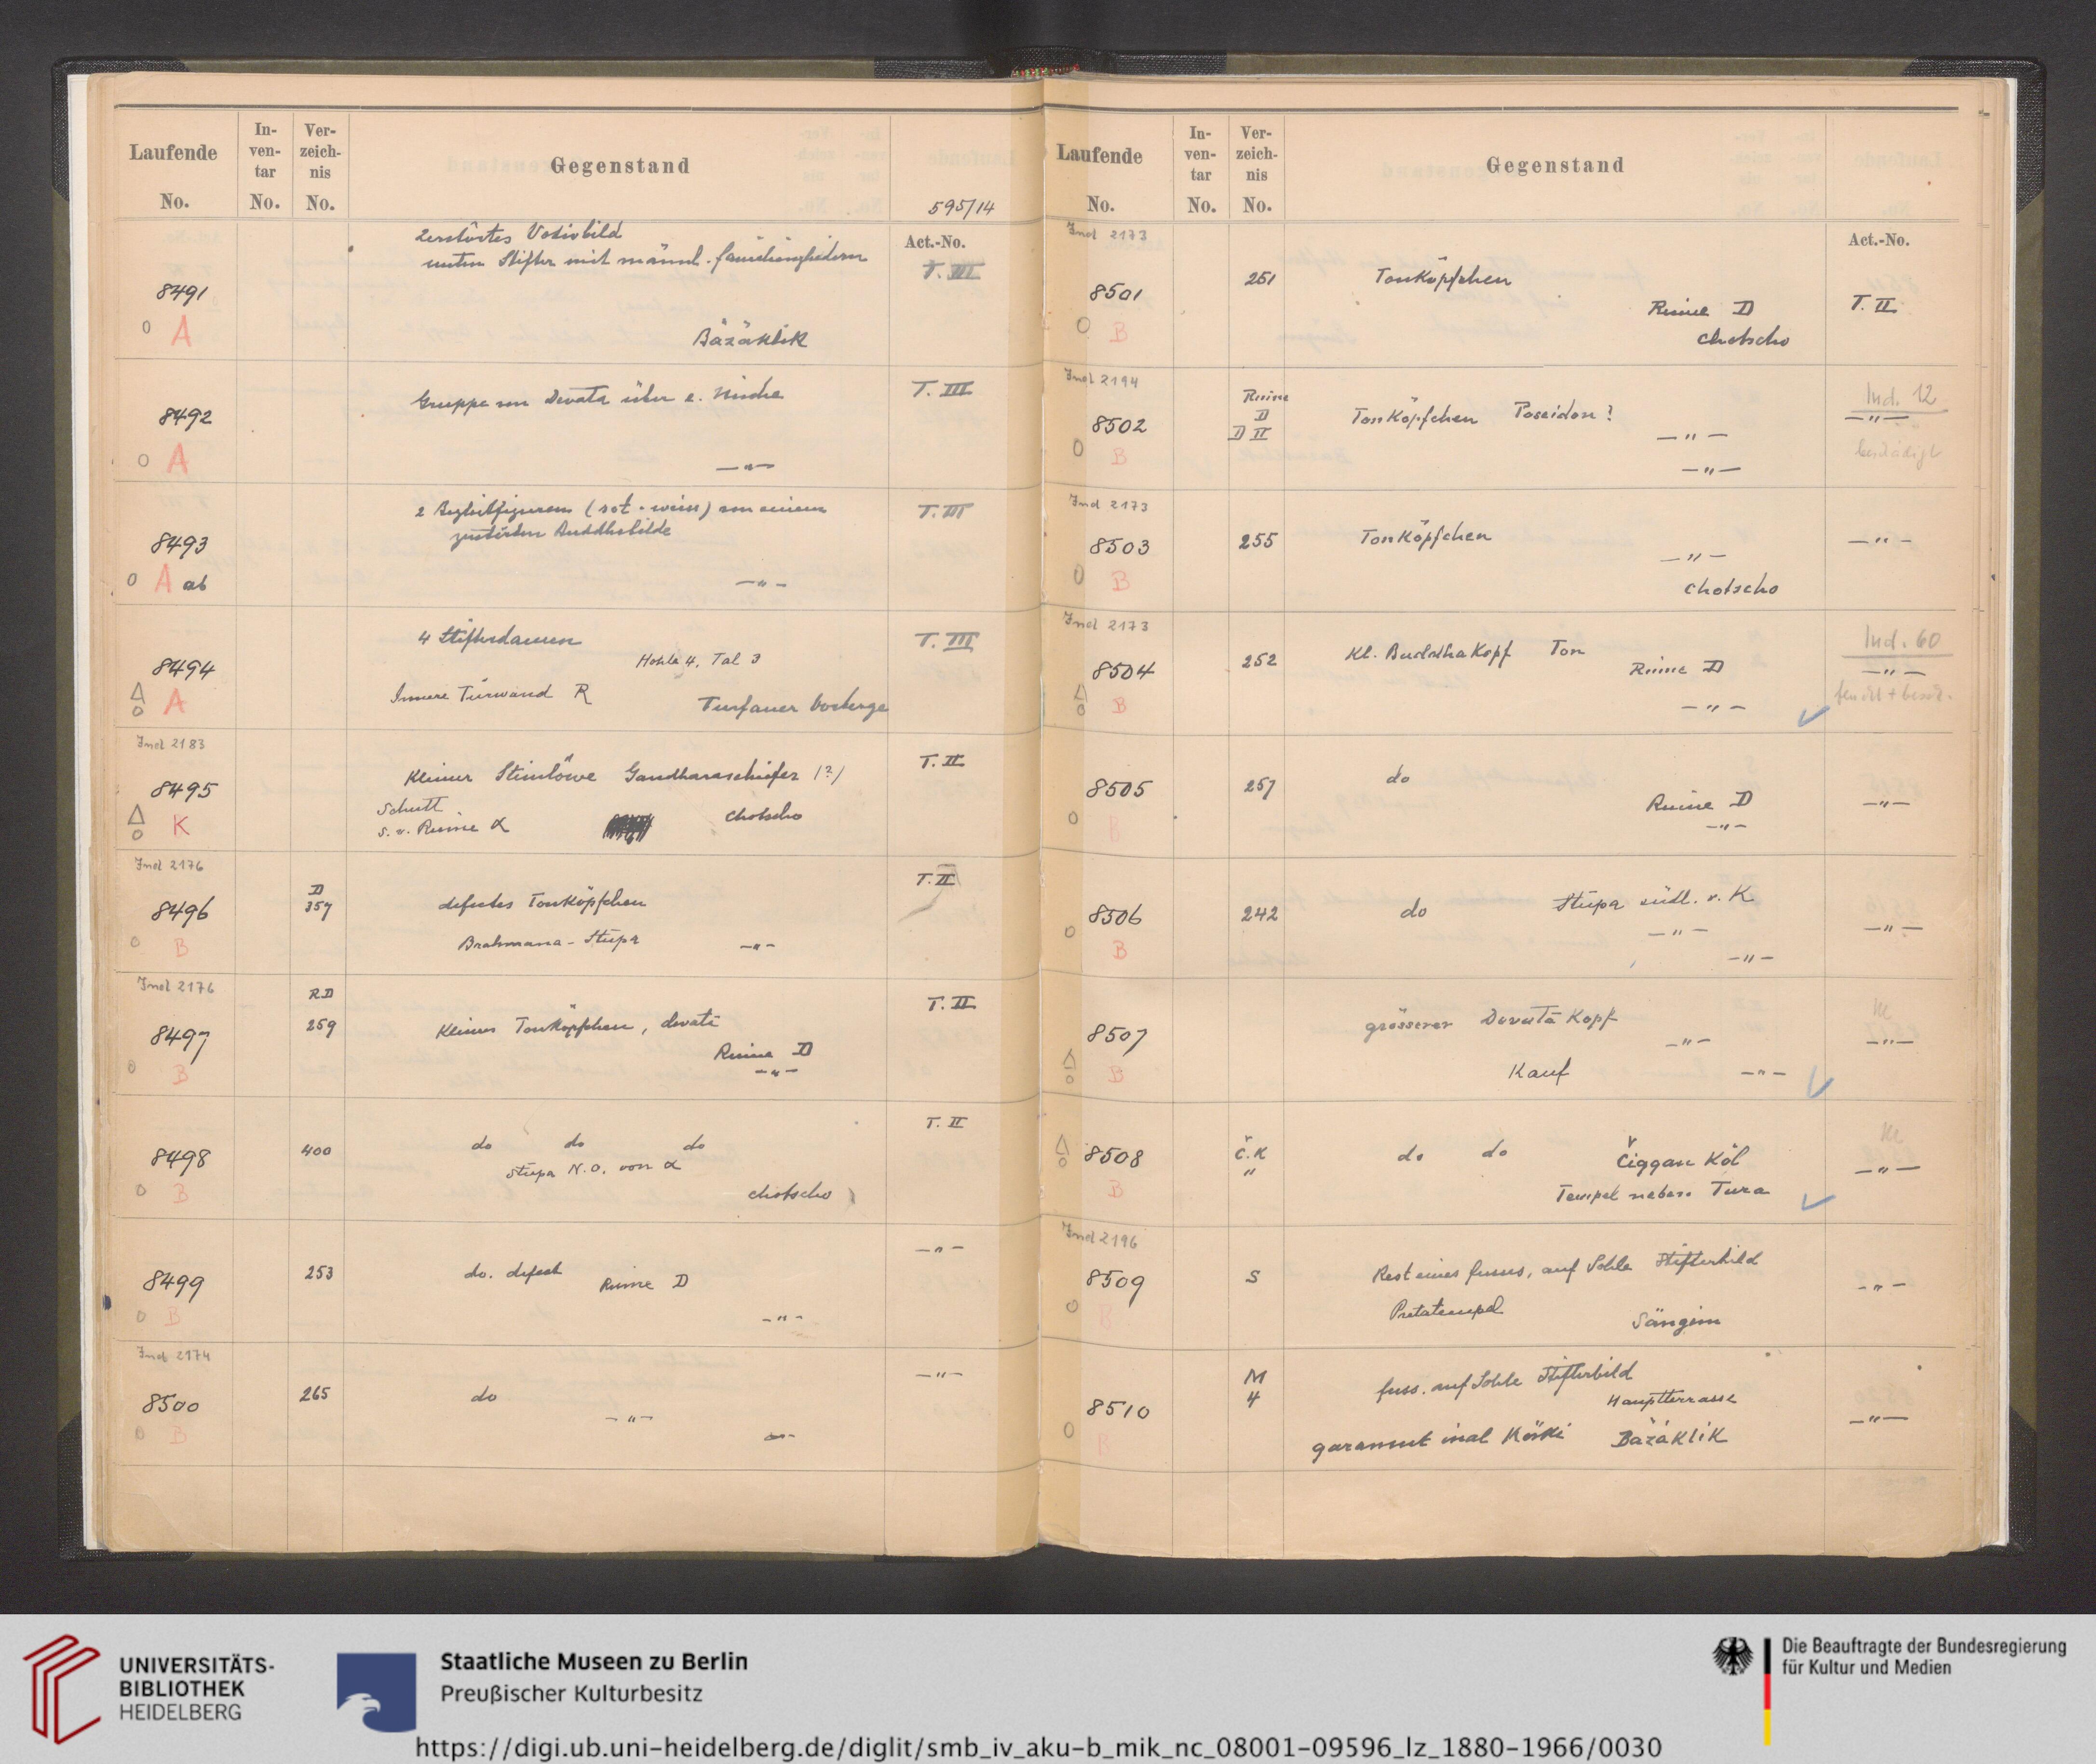 Laufende No.
In-ven-tar No.
Ver-zeich-nis No.
Gegenstand
595/14
Act.-No.
8491
o A
Zerstörtes Votivbild
unten Stifter mit männl. Familiengliedern
Bäzäklik
T. III
8492
o A
Gruppe von Devata über e. Nische
—"—
T. III
8493
o A ab
2 Begleitfiguren (rot-weiss) von einem
zerstörten Buddhabilde
—"—
T. III
8494
Δ o A
4 Stifterdamen
Höhle 4. Tal 3
Innere Türwand R
Turfaner Vorberge
T. III
Ind 2183
8495
Δ o K
Kleiner Steinlöwe Gandharaschiefer (?)
Schutt
s. v. Ruine α
Chotscho
T. II
Ind 2176
8496
o B
D
357
defectes Tonköpfchen
Brahmana-Stupa —"—
T. II
Ind 2176
8497
o B
R.D
259
Kleines Tonköpfchen, devata
Ruine D
—"—
T. II
8498
o B
400
do do do
Stupa N.O. von α
Chotscho
T. II
8499
o B
253
do. defect
Ruine D
—"—
—"—
Ind 2174
8500
o B
265
do
—"—
—"—
—"—
Laufende No.
In-ven-tar No.
Ver-zeich-nis No.
Gegenstand
Act.-No.
Ind 2173
8501
o B
251
Tonköpfchen
Ruine D
Chotscho
T. II
Ind 2194
8502
o B
Ruine
D
D II
Tonköpfchen Poseidon?
—"—
—"—
Ind. 12
—"—
beschädigt
Ind 2173
8503
o B
255
Tonköpfchen
—"—
Chotscho
—"—
Ind 2173
8504
Δ o B
252
Kl. Buddha Kopf Ton
Ruine D
—"—
Ind. 60
—"—
8505
o B
257
do
Ruine D
—"—
—"—
8506
o B
242
do
Stupa südl. v. K
—"—
—"—
—"—
8507
Δ o B
grösserer Devatā Kopf
—"—
Kauf —"—
—"—
8508
Δ o B
Č.K
"
do do Čiggan Köl
Tempel neben Tura
—"—
Ind 2196
8509
o B
S
Rest eines Fusses, auf Sohle Stifterbild
Pretatempel
Sängim
—"—
8510
o B
M
4
Fuss. auf Sohle Stifterbild
Hauptterrasse
Bäzäklik
—"—
UNIVERSITÄTS-
BIBLIOTHEK
HEIDELBERG
Staatliche Museen zu Berlin
Preußischer Kulturbesitz
Die Beauftragte der Bundesregierung
für Kultur und Medien
https://digi.ub.uni-heidelberg.de/diglit/smb_iv_aku-b_mik_nc_08001-09596_lz_1880-1966/0030